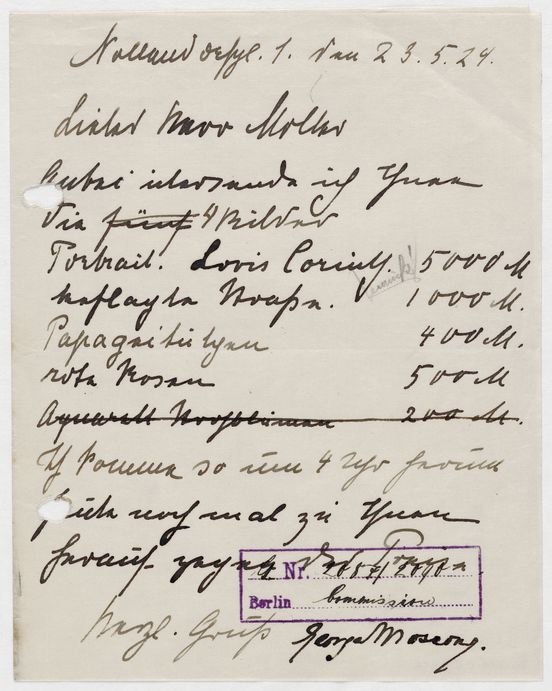 Nollendorfpl. 1. den 23.5.24.
Lieber Herr Möller
Anbei übersende ich Ihnen
die fünf 4 Bilder
Portrait. Lovis Corinth. 5000 M
beflaggte Strasse. 1000 M.
Papageitulpen 400 M.
rote Rosen 500 M
Aquarell 200 M.
Ich komme so um 4 Uhr herum
heute noch mal zu Ihnen
herauf wegen der Preise
Nr.
Berlin Commission
Herzl. Gruß Georg Mosson.